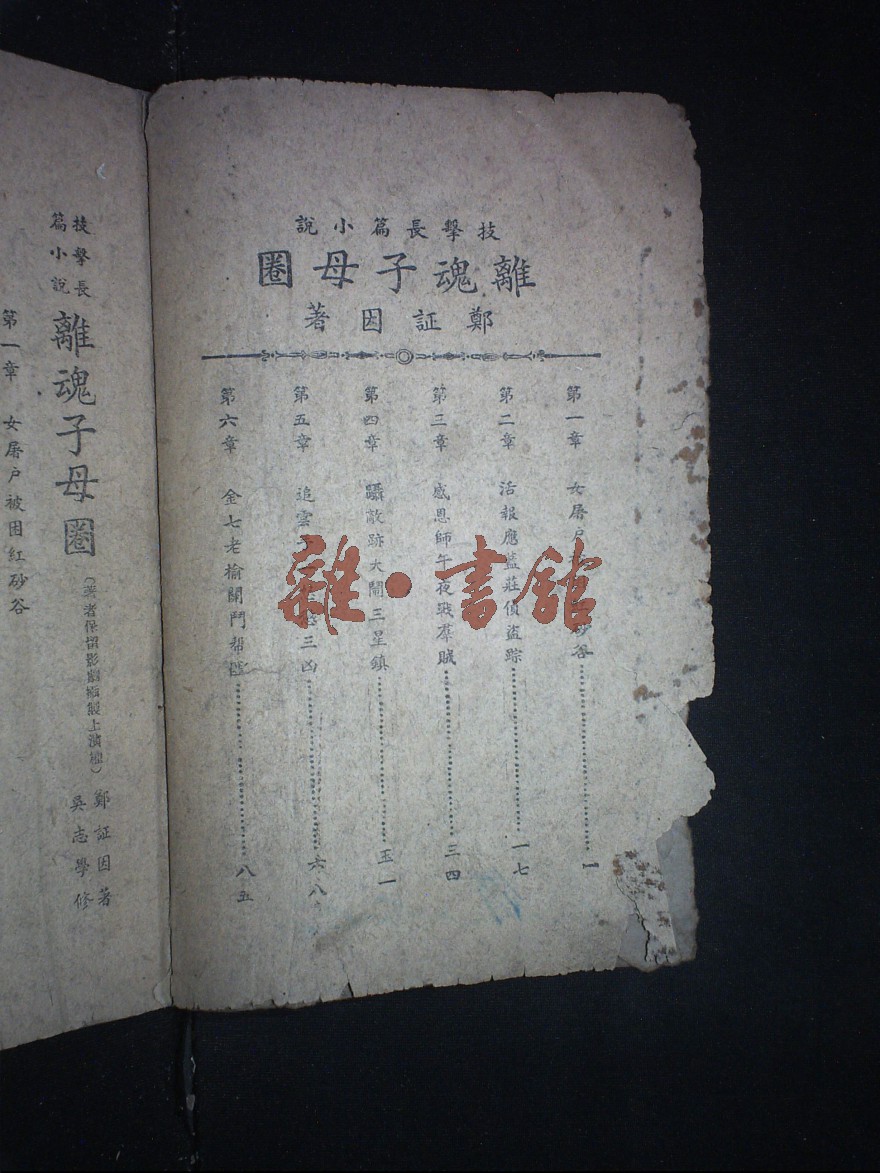 技擊長篇小說
離魂子母圈
鄭証因著
第一章 女屠戶 砂谷 一
第二章 活報應藍莊偵盜踪 一七
第三章 感恩師午夜戰羣賊 三四
第四章 躡敵跡大鬧三星鎮 五一
第五章 追雲 三凶 六八
第六章 金七老搶關鬥幫 八五
雜·書館
技擊長
篇小說
離魂子母圈
(著者保留影劇攝製上演權)
鄭証因著
吳志學修
第一章 女屠戶被困紅砂谷